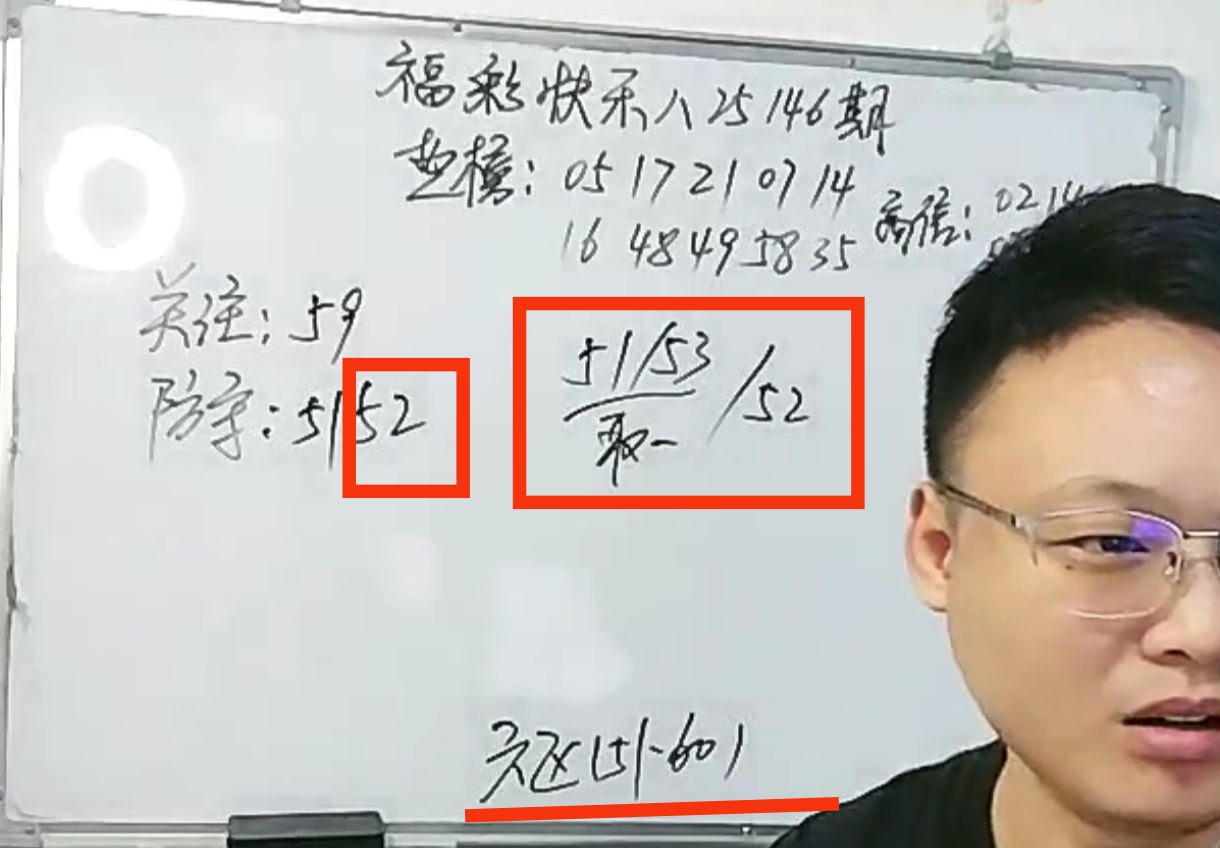 福彩快乐八25146期
垫榜: 05 17 21 07 14
16 48 49 58 35
高信: 02 14
关注: 59
防守: 51 52
51/53
取一
/52
六区(51-60)